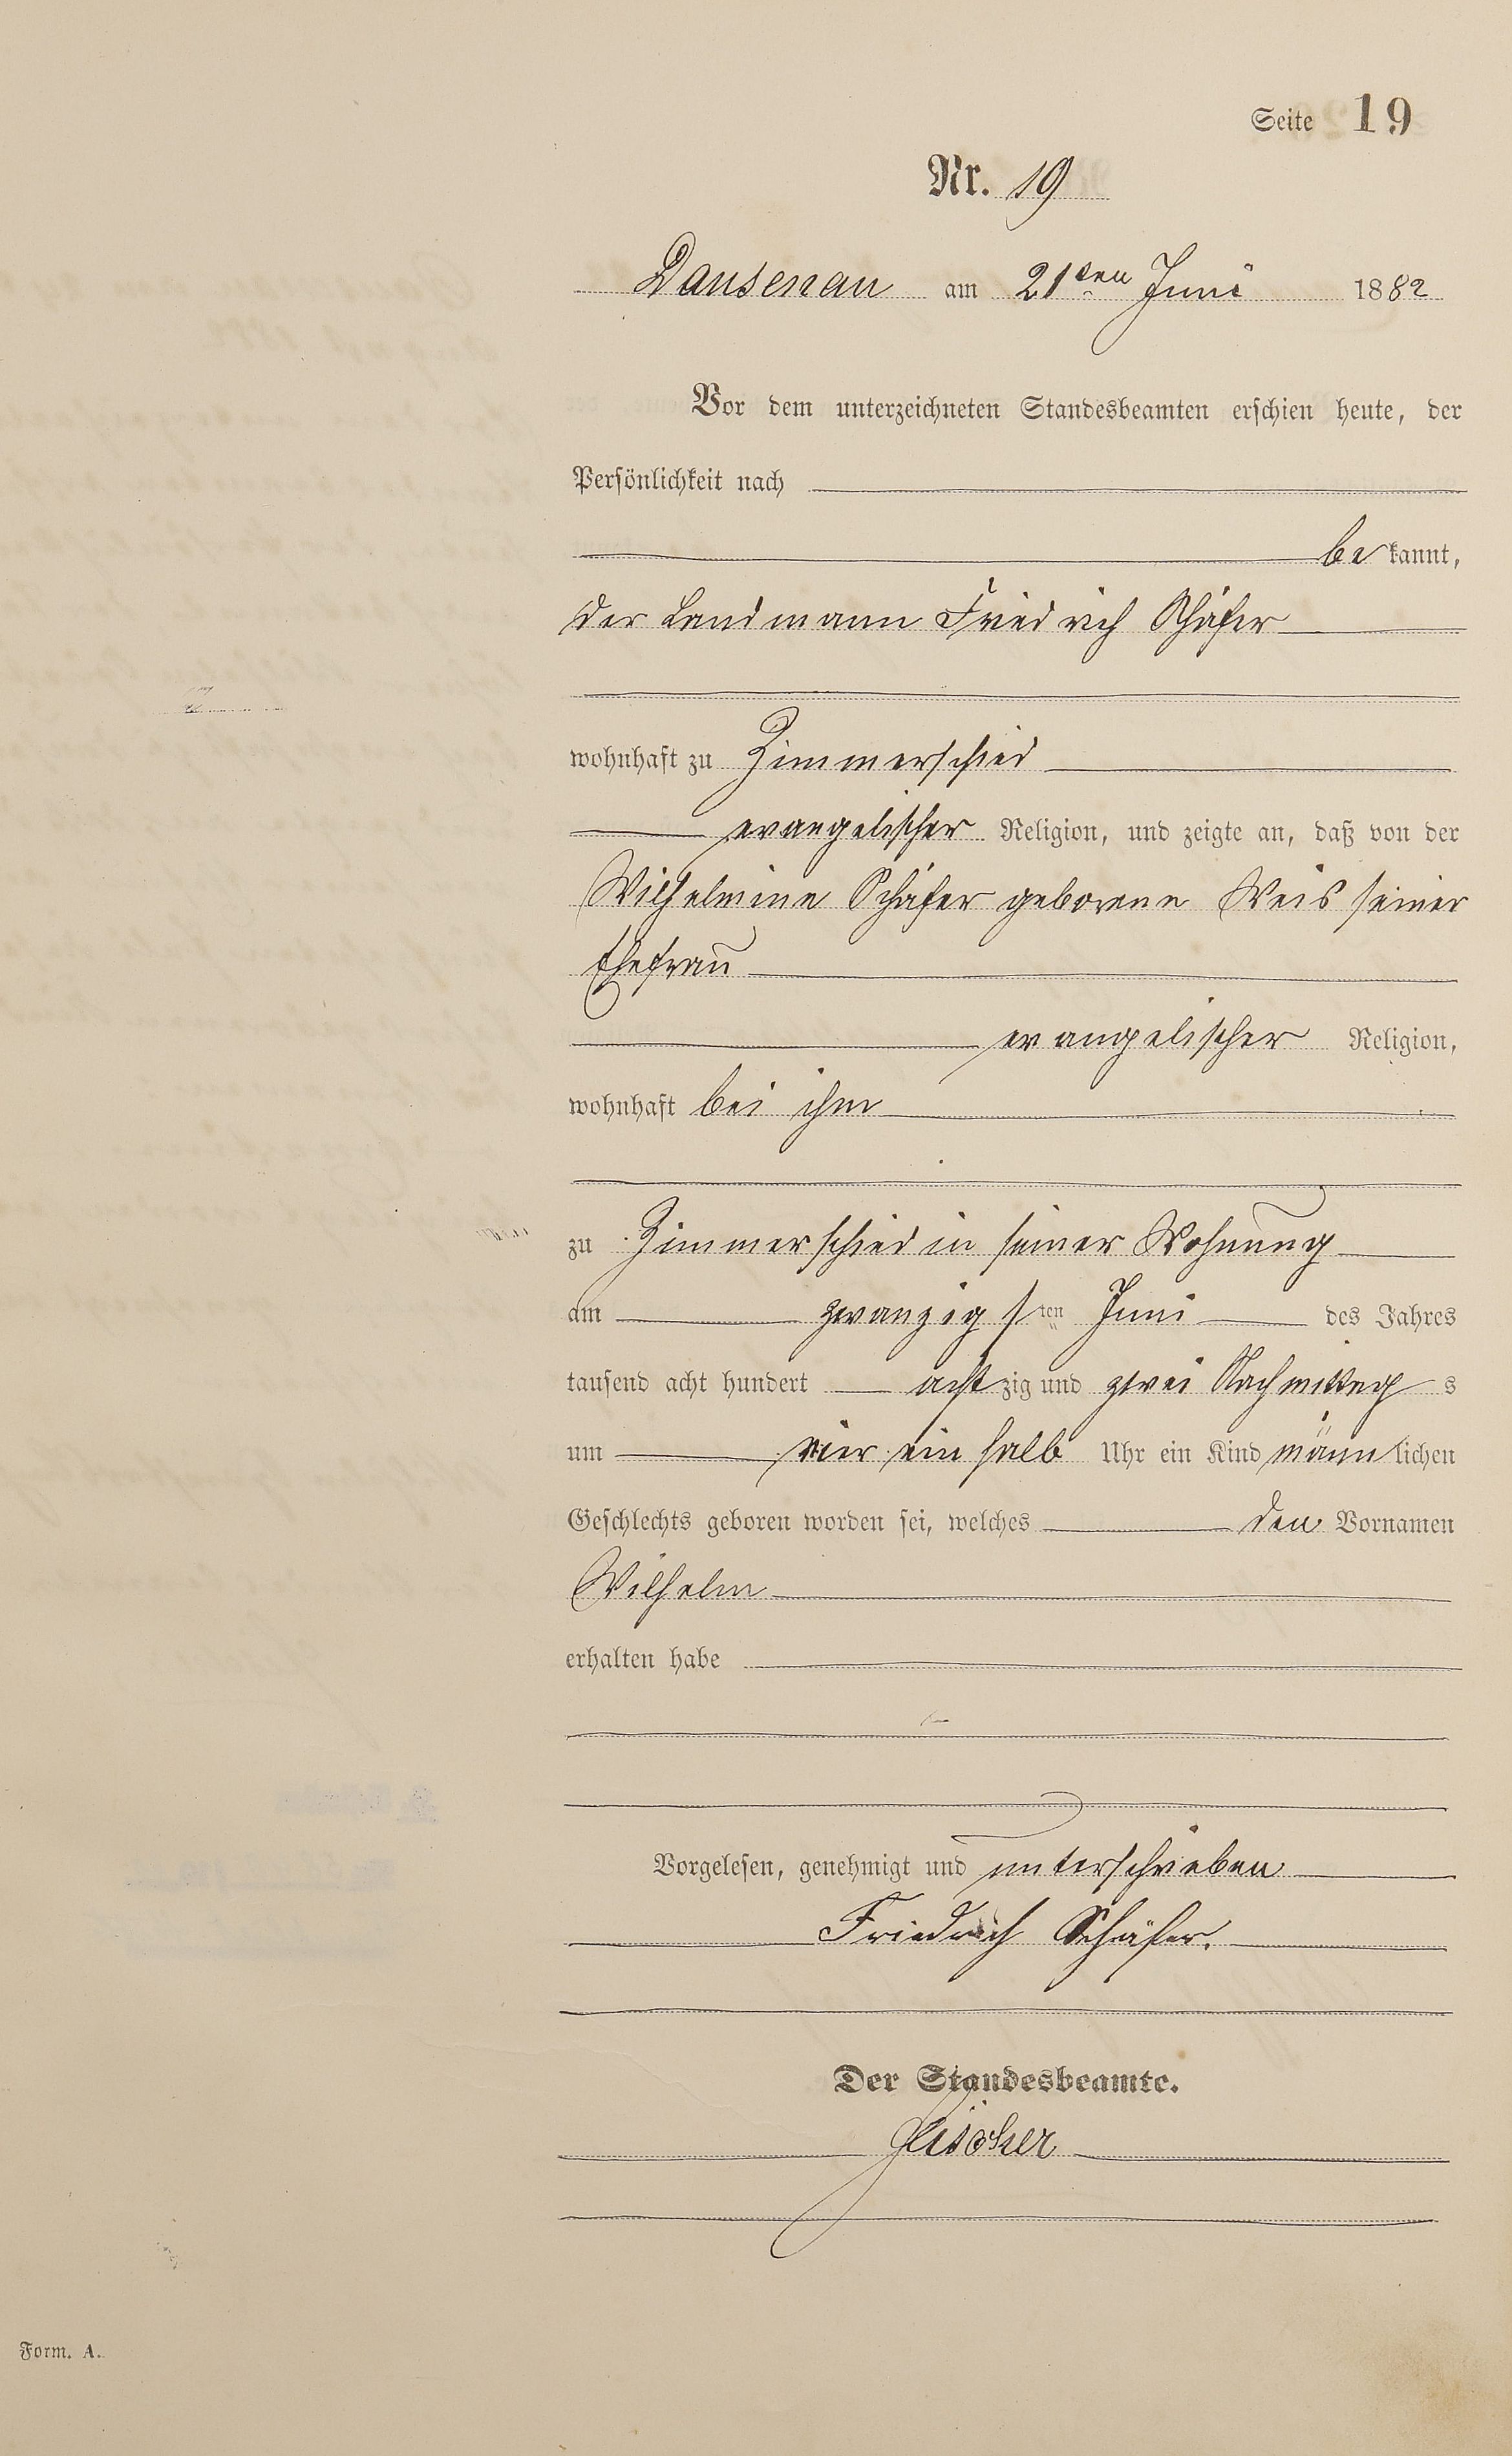 Seite 19
Nr. 19
Dausenau am 21ten Juni 1882
Vor dem unterzeichneten Standesbeamten erschien heute, der
Persönlichkeit nach
be kannt,
der Landmann Friedrich Schäfer
wohnhaft zu Zimmerschied
evangelischer Religion, und zeigte an, daß von der
Wilhelmine Schäfer geborene Weis seiner
Ehefrau
evangelischer Religion,
wohnhaft bei ihm
zu Zimmerschied in seiner Wohnung
am zwanzigsten Juni des Jahres
tausend acht hundert achtzig und zwei Nachmittags
um vier ein halb Uhr ein Kind männlichen
Geschlechts geboren worden sei, welches den Vornamen
Wilhelm
erhalten habe
Vorgelesen, genehmigt und unterschrieben
Friedrich Schäfer.
Der Standesbeamte.
Form. A.